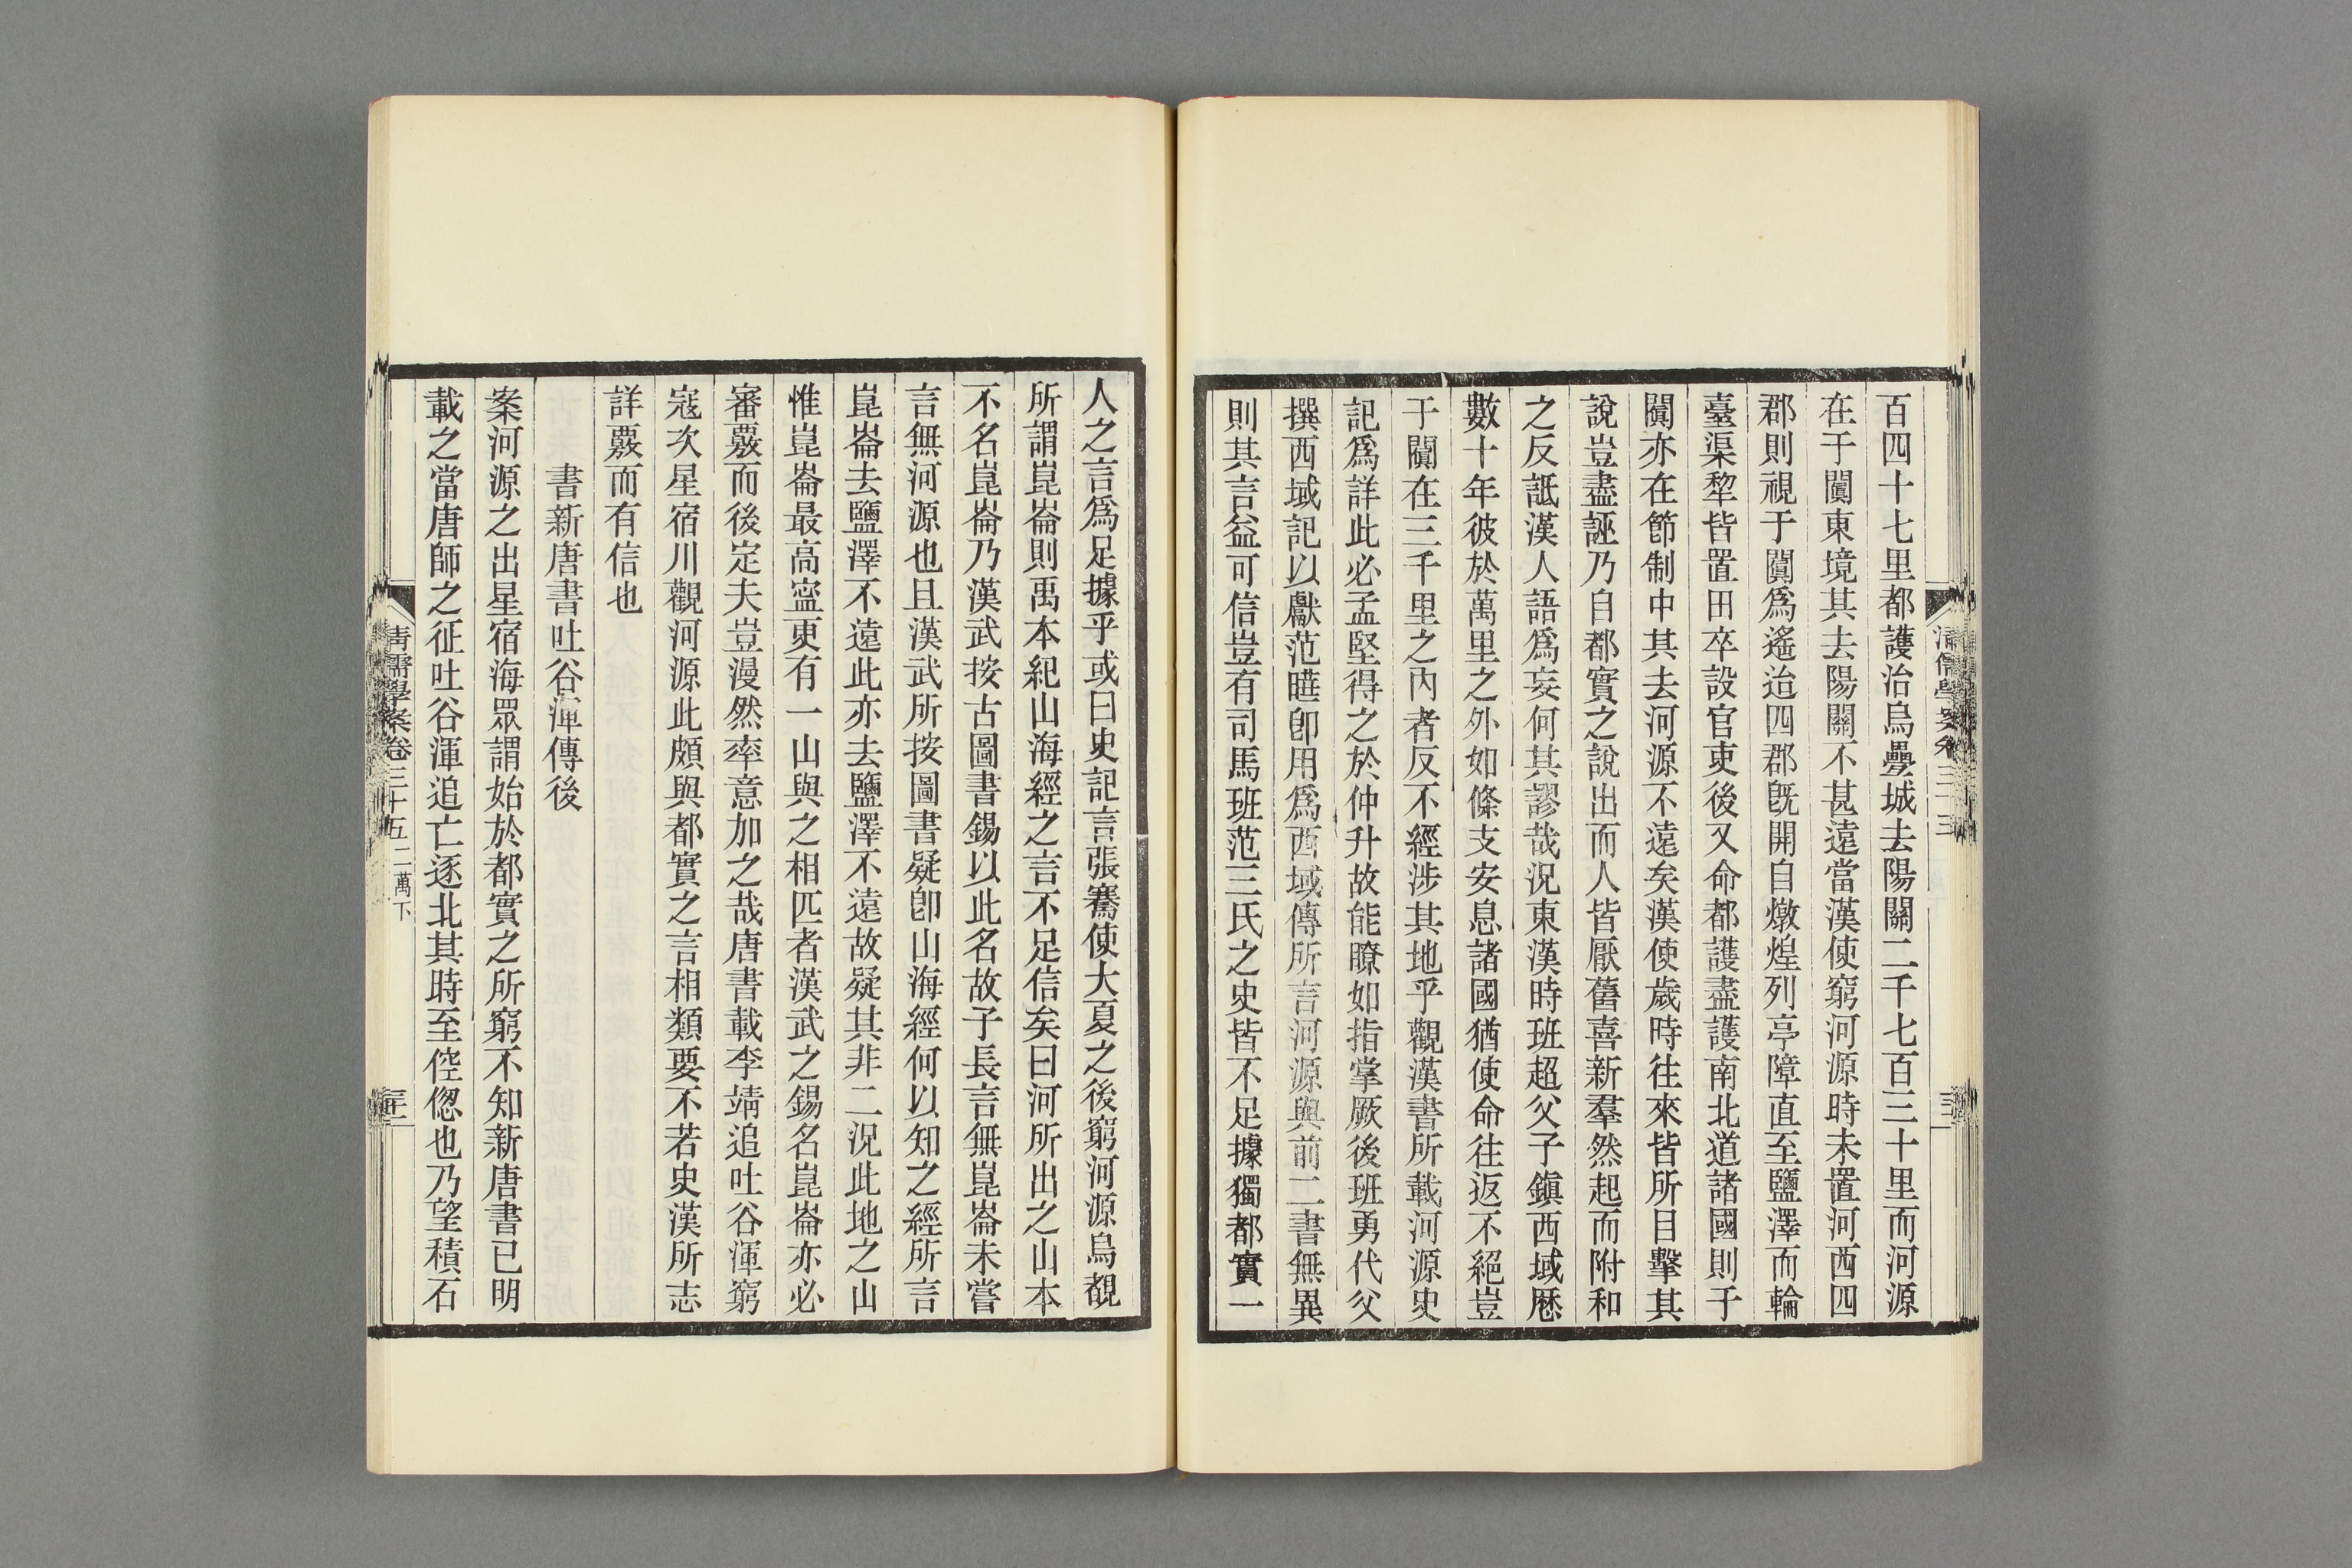 百四十七里都護治烏壘城去陽關二千七百三十里而河源
在于闐東境其去陽關不甚遠當漢使窮河源時未置河西四
郡則視于闐爲遙迨四郡既開自燉煌列亭障直至鹽澤而輪
臺渠犂皆置田卒設官吏後又命都護盡護南北道諸國則于
闐亦在節制中其去河源不遠矣漢使歲時往來皆所目擊其
說豈盡誣乃自都實之說出而人皆厭舊喜新羣然起而附和
之反詆漢人語爲妄何其謬哉況東漢時班超父子鎭西域歷
數十年彼於萬里之外如條支安息諸國猶使命往返不絕豈
于闐在三千里之內者反不經涉其地乎觀漢書所載河源史
記爲詳此必孟堅得之於仲升故能瞭如指掌厥後班勇代父
撰西域記以獻范曄卽用爲西域傳所言河源與前二書無異
則其言益可信豈有司馬班范三氏之史皆不足據獨都實一
人之言爲足據乎或曰史記言張騫使大夏之後窮河源烏覩
所謂崑崙則禹本紀山海經之言不足信矣曰河所出之山本
不名崑崙乃漢武按古圖書錫以此名故子長言無崑崙未嘗
言無河源也且漢武所按圖書疑卽山海經何以知之經所言
崑崙去鹽澤不遠此亦去鹽澤不遠故疑其非二況此地之山
惟崑崙最高寍更有一山與之相匹者漢武之錫名崑崙亦必
審覈而後定夫豈漫然率意加之哉唐書載李靖追吐谷渾窮
寇次星宿川觀河源此頗與都實之言相類要不若史漢所志
詳覈而有信也
書新唐書吐谷渾傳後
案河源之出星宿海眾謂始於都實之所窮不知新唐書已明
載之當唐師之征吐谷渾追亡逐北其時至倥傯也乃望積石
清儒學案卷三十五 二萬下